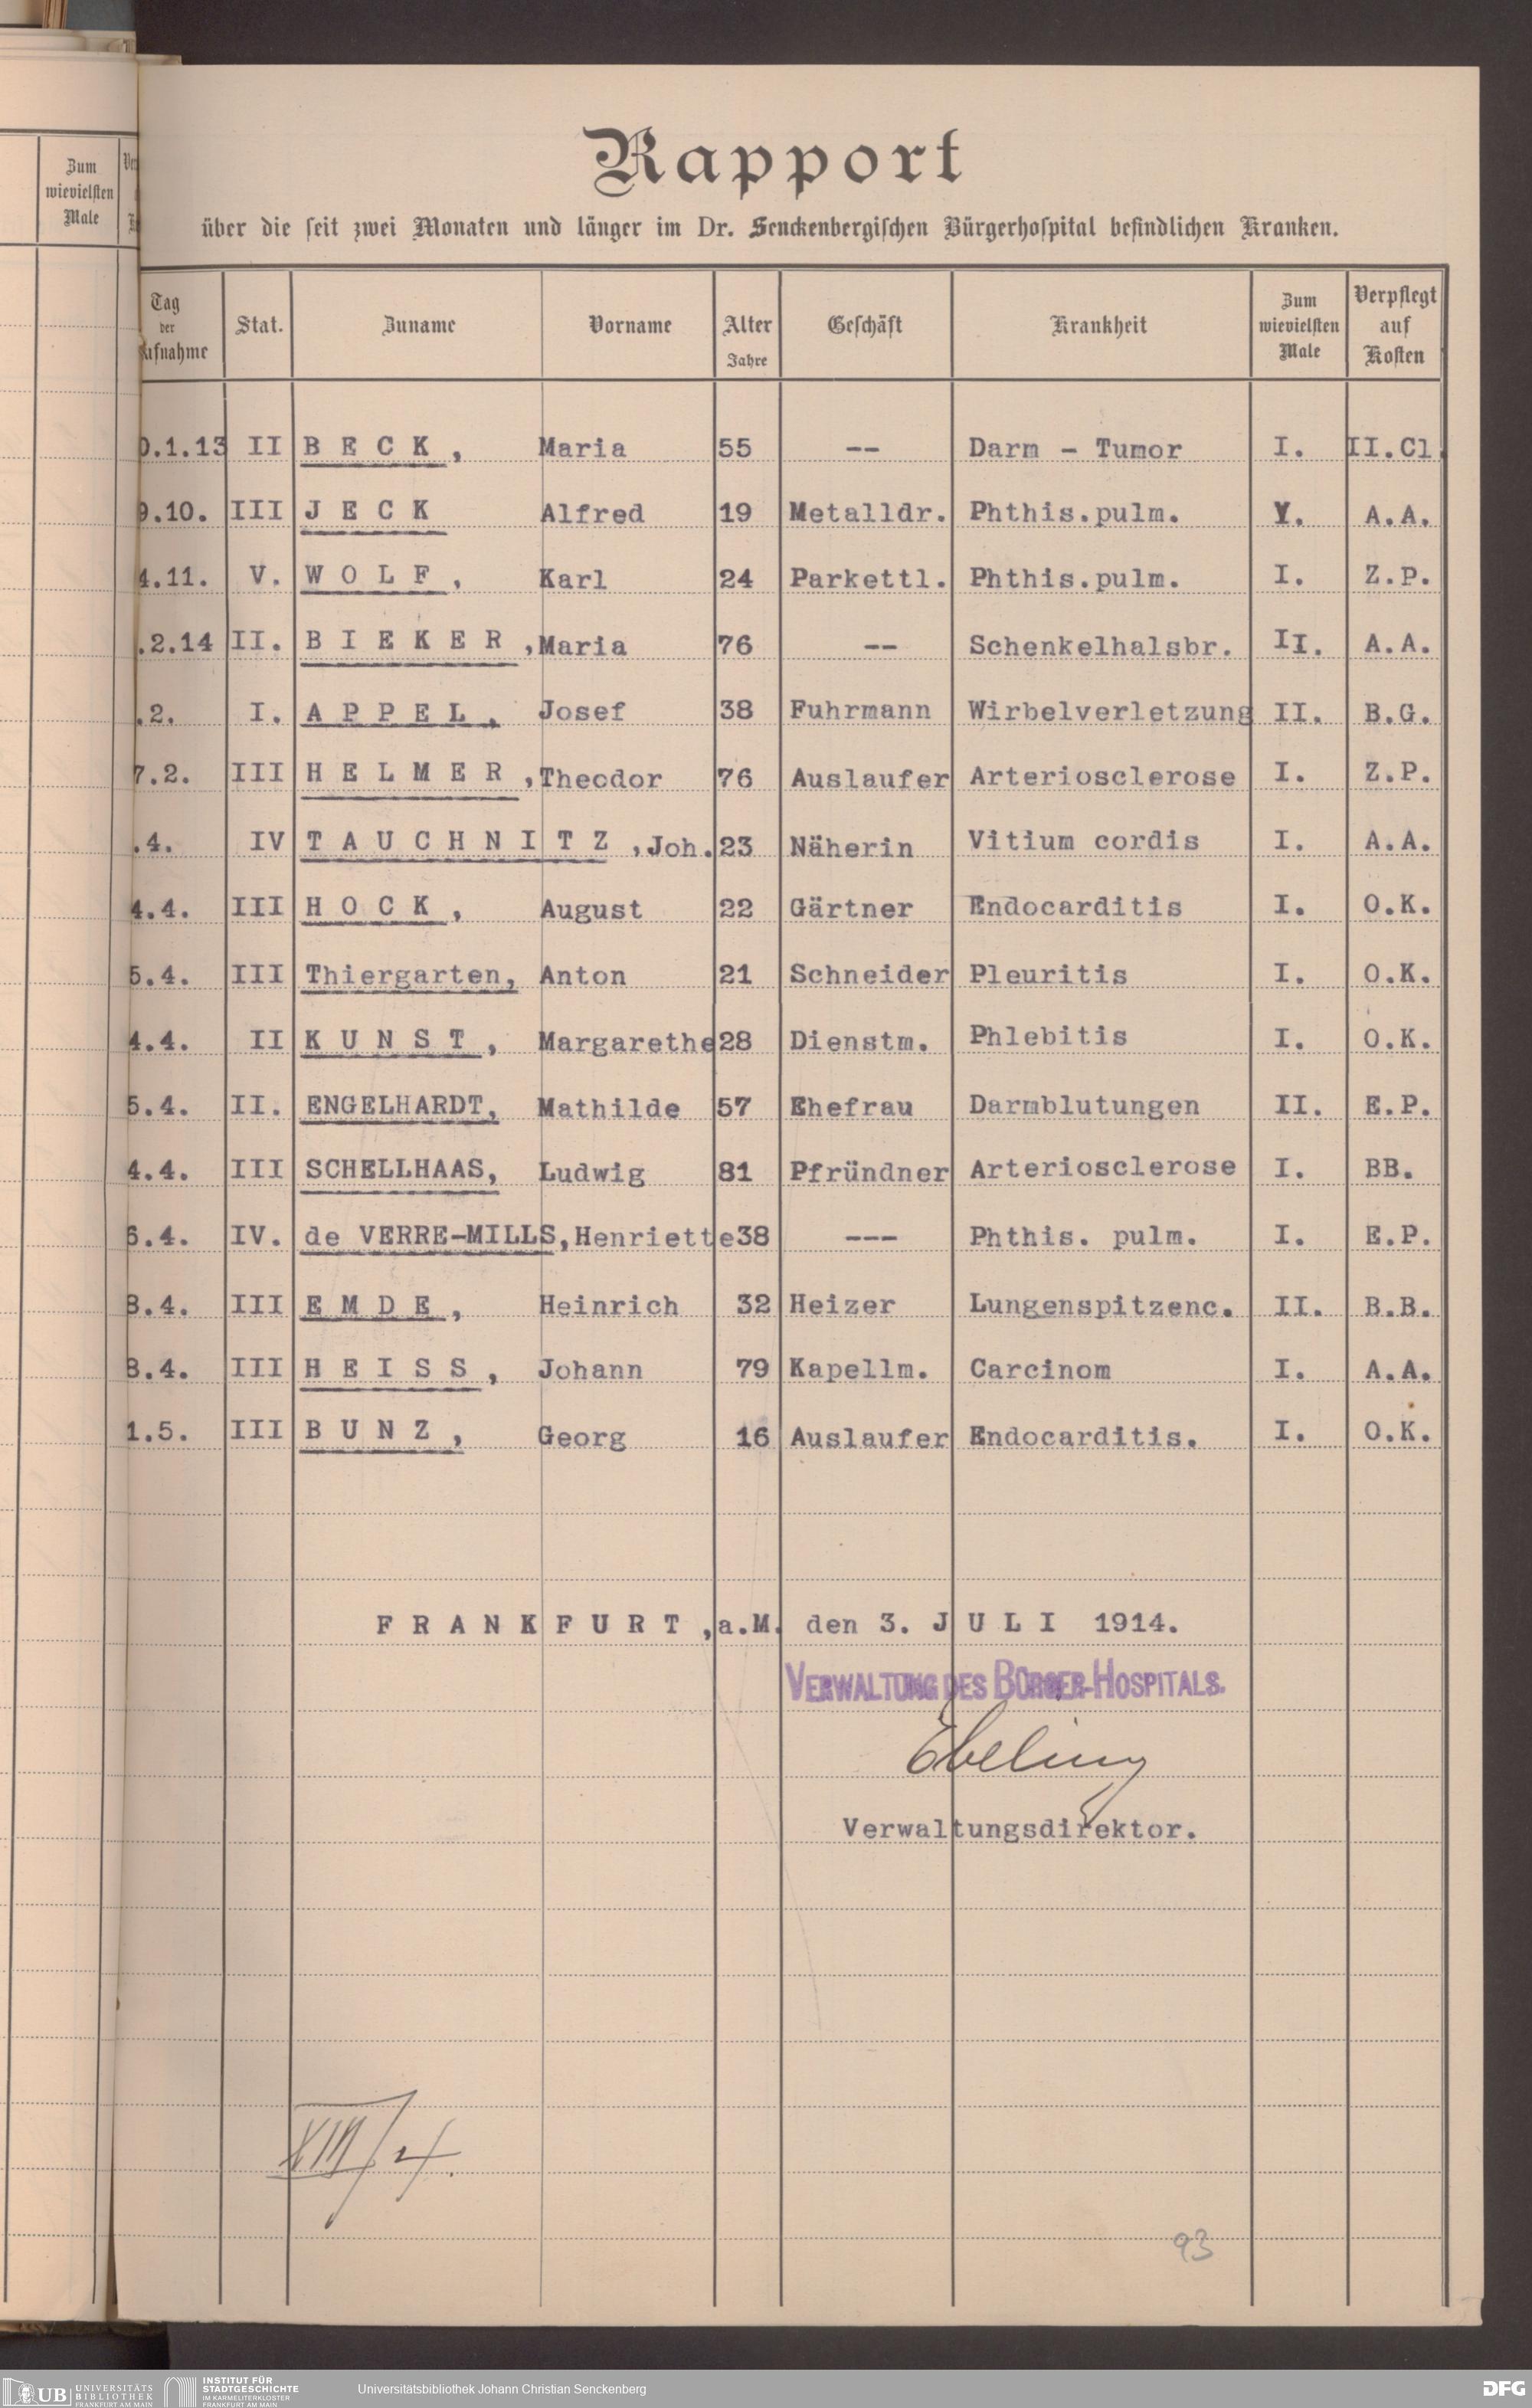 Zum
wievielsten
Male
Rapport
über die seit zwei Monaten und länger im Dr. Senckenbergischen Bürgerhospital befindlichen Kranken.
Tag der Aufnahme Stat. Zuname Vorname Alter Jahre Geschäft Krankheit Zum wievielsten Male Verpflegt auf Kosten
0.1.13 II B E C K , Maria 55 -- Darm - Tumor I. II.Cl.
9.10. III J E C K Alfred 19 Metalldr. Phthis.pulm. V. A.A.
4.11. V. W O L F , Karl 24 Parkettl. Phthis.pulm. I. Z.P.
.2.14 II. B I E K E R , Maria 76 -- Schenkelhalsbr. II. A.A.
.2. I. A P P E L , Josef 38 Fuhrmann Wirbelverletzung II. B.G.
7.2. III H E L M E R , Theodor 76 Auslaufer Arteriosclerose I. Z.P.
.4. IV T A U C H N I T Z , Joh. 23 Näherin Vitium cordis I. A.A.
4.4. III H O C K , August 22 Gärtner Endocarditis I. O.K.
5.4. III Thiergarten, Anton 21 Schneider Pleuritis I. O.K.
4.4. II K U N S T , Margarethe 28 Dienstm. Phlebitis I. O.K.
5.4. II. ENGELHARDT, Mathilde 57 Ehefrau Darmblutungen II. E.P.
4.4. III SCHELLHAAS, Ludwig 81 Pfründner Arteriosclerose I. BB.
6.4. IV. de VERRE-MILLS, Henriette 38 --- Phthis. pulm. I. E.P.
8.4. III E M D E , Heinrich 32 Heizer Lungenspitzenc. II. B.B.
8.4. III H E I S S , Johann 79 Kapellm. Carcinom I. A.A.
1.5. III B U N Z , Georg 16 Auslaufer Endocarditis. I. O.K.
F R A N K F U R T , a.M. den 3. J U L I 1914.
VERWALTUNG DES BÜRGER-HOSPITALS.
Ebeling
Verwaltungsdirektor.
93
UB UNIVERSITÄTS BIBLIOTHEK FRANKFURT AM MAIN
INSTITUT FÜR STADTGESCHICHTE IM KARMELITERKLOSTER FRANKFURT AM MAIN
Universitätsbibliothek Johann Christian Senckenberg
DFG